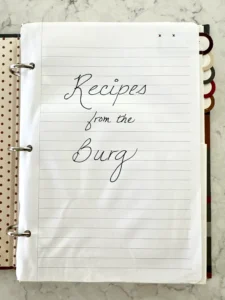 Recipes
from the
Burg